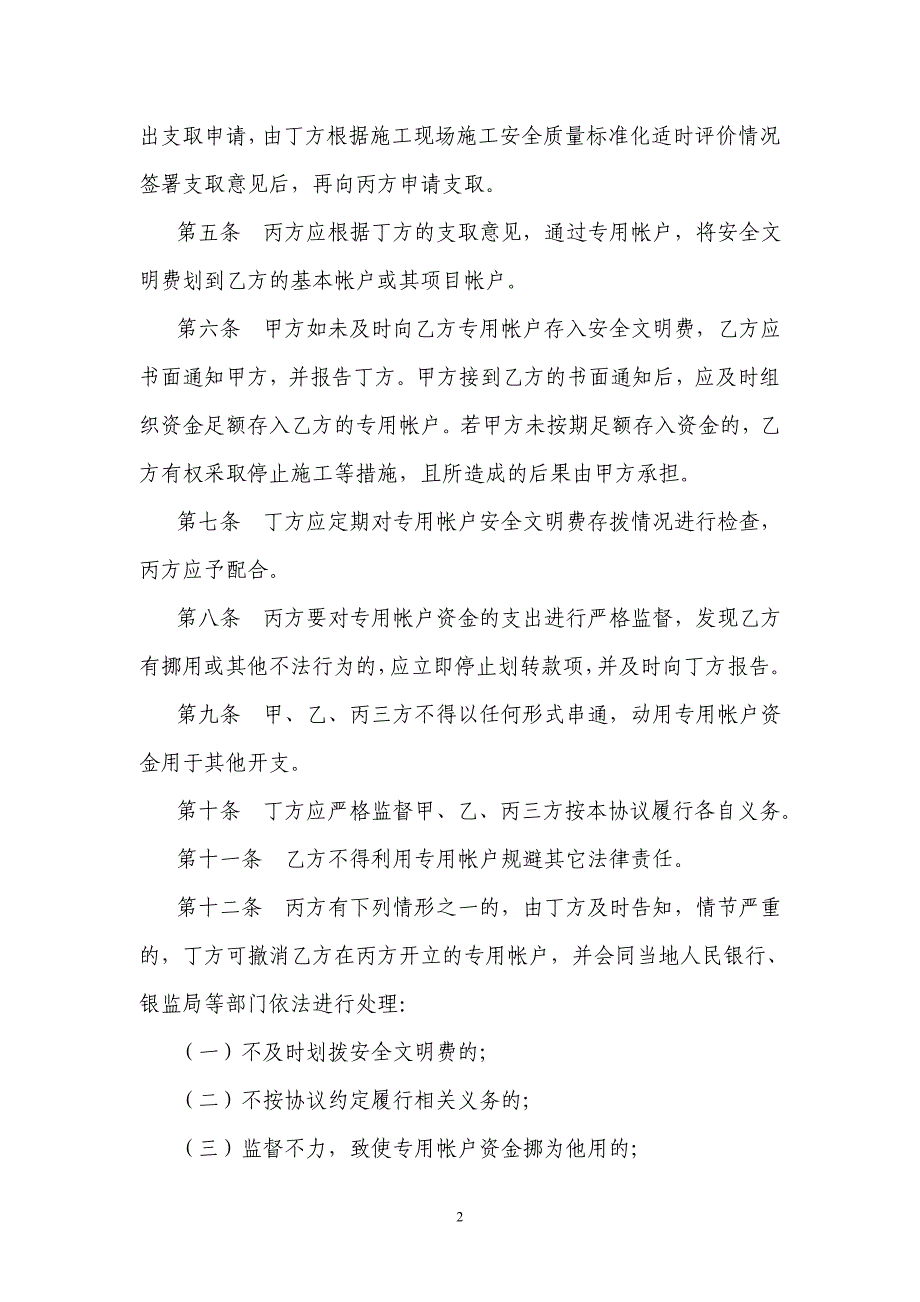 出支取申请，由丁方根据施工现场施工安全质量标准化适时评价情况
签署支取意见后，再向丙方申请支取。
第五条　丙方应根据丁方的支取意见，通过专用帐户，将安全文
明费划到乙方的基本帐户或其项目帐户。
第六条　甲方如未及时向乙方专用帐户存入安全文明费，乙方应
书面通知甲方，并报告丁方。甲方接到乙方的书面通知后，应及时组
织资金足额存入乙方的专用帐户。若甲方未按期足额存入资金的，乙
方有权采取停止施工等措施，且所造成的后果由甲方承担。
第七条　丁方应定期对专用帐户安全文明费存拨情况进行检查，
丙方应予配合。
第八条　丙方要对专用帐户资金的支出进行严格监督，发现乙方
有挪用或其他不法行为的，应立即停止划转款项，并及时向丁方报告。
第九条　甲、乙、丙三方不得以任何形式串通，动用专用帐户资
金用于其他开支。
第十条　丁方应严格监督甲、乙、丙三方按本协议履行各自义务。
第十一条　乙方不得利用专用帐户规避其它法律责任。
第十二条　丙方有下列情形之一的，由丁方及时告知，情节严重
的，丁方可撤消乙方在丙方开立的专用帐户，并会同当地人民银行、
银监局等部门依法进行处理：
（一）不及时划拨安全文明费的；
（二）不按协议约定履行相关义务的；
（三）监督不力，致使专用帐户资金挪为他用的；
2